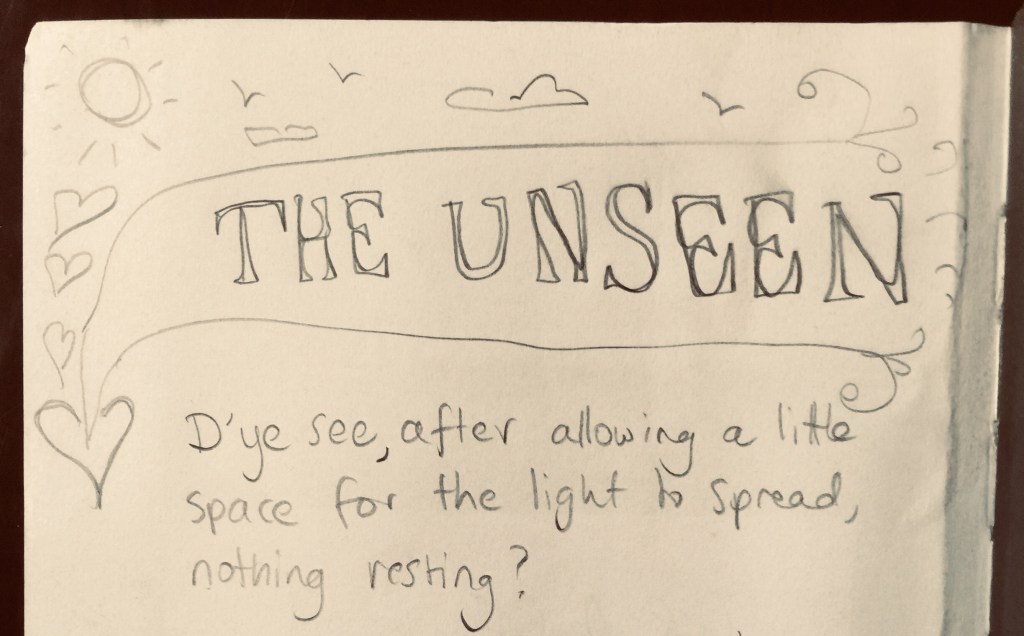 THE UNSEEN
D'ye see, after allowing a little
space for the light to spread,
nothing resting?